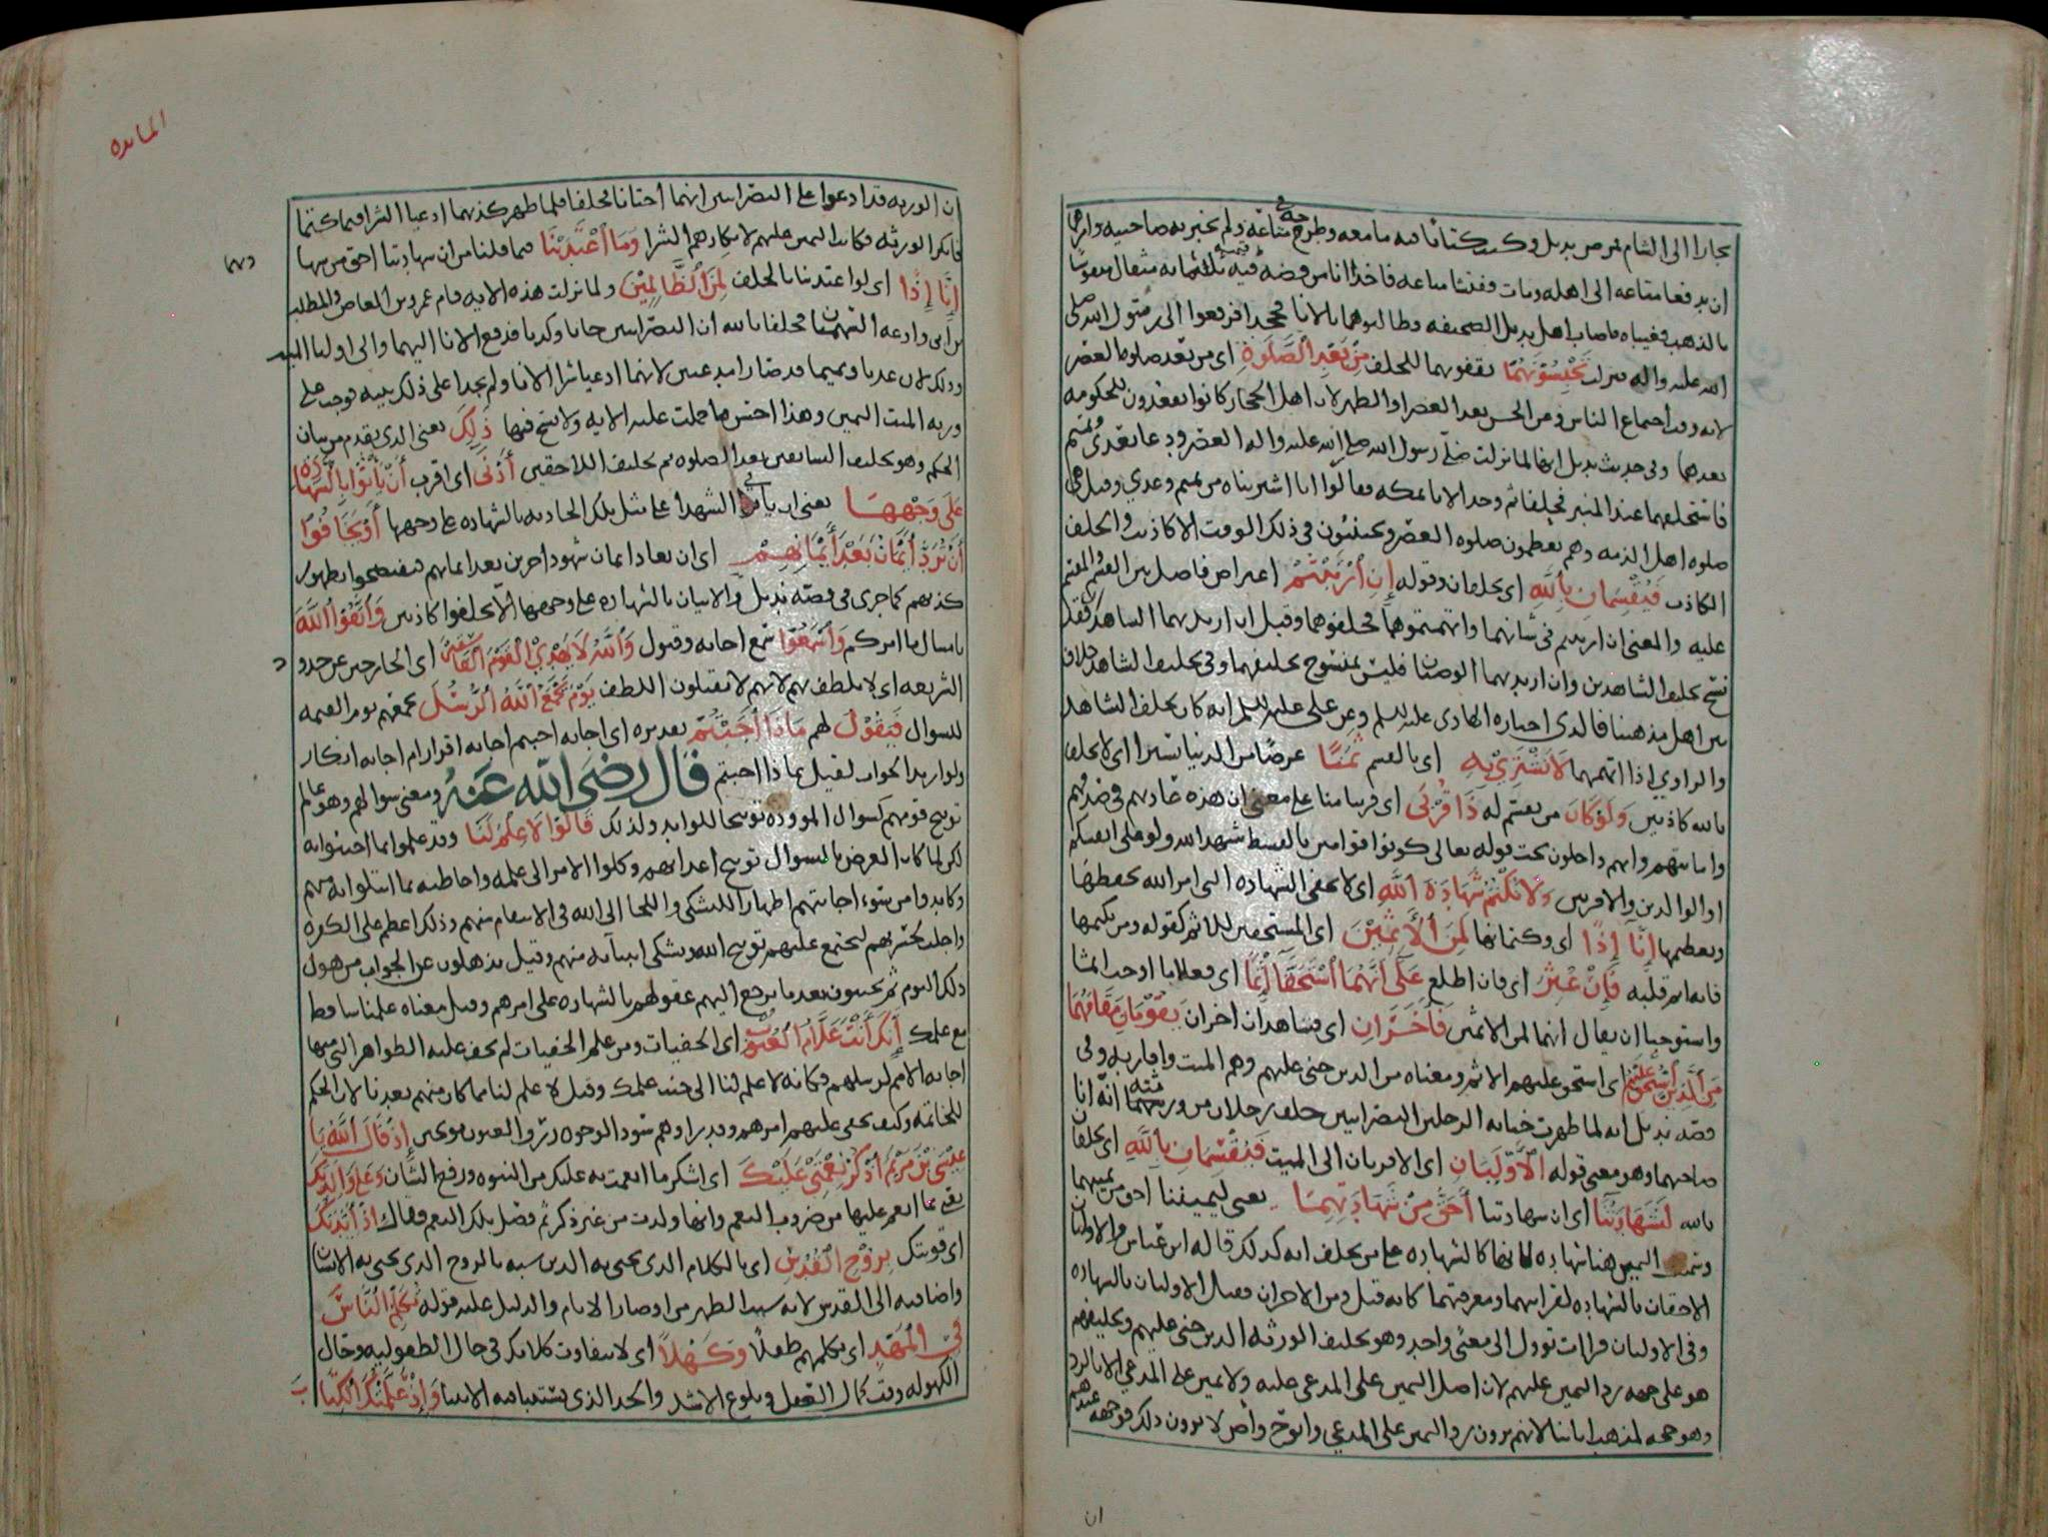 تجارا الى الشام فمرض بديل وكتب كتابا فيه ما معه وطرحه في متاعه ولم يخبر به صاحبيه وامرهما
ان يدفعا متاعه الى اهله ومات ففتشا متاعه فاخذا انا من فضه فيه ثلثمائه مثقال منقوشا
بالذهب فغيباه فاصاب اهل بديل الصحيفه وطالبوهما بالانا فجحدا فرفعوا الى رسول الله صلى
الله عليه واله فنزلت تَحْبِسُونَهُمَا تقفونهما للحلف مِنْ بَعْدِ الصَّلَوةِ اى من بعد صلوه العصر
لانه وقت اجتماع الناس وعن الحسن بعد العصر او الظهر لان اهل الحجاز كانوا يقعدون للحكومه
بعدهما وفى حديث بديل انها لما نزلت صلى رسول الله صلى الله عليه واله العصر ودعا بعدى وتميم
فاستحلفهما عند المنبر فحلفا ثم وجد الانا بمكه فقالوا انا اشتريناه من تميم وعدي وقيل هى
صلوه اهل الذمه وهم يعظمون صلوه العصر ويجتنبون فى ذلك الوقت الاكاذيب والحلف
الكاذب فَيُقْسِمَانِ بِاللَّهِ اى يحلفان وقوله إِنِ ارْتَبْتُمْ اعتراض فاصل بين القسم والمقسم
عليه والمعنى ان ارتبتم فى شانهما واتهمتموهما فحلفوهما وقيل ان اريد بهما الشاهدان فقد
نسخ تحليف الشاهدين وان اريد بهما الوصيان فليس بمنسوخ تحليفهما وفى تحليف الشاهد خلاف
بين اهل مذهبنا فالذى اختاره الهادى عليه السلم وعن على عليه السلم انه كان يحلف الشاهد
والراوي اذا اتهمهما لَانَشْتَرِي بِهِ اى بالقسم ثَمَنًا عرضا من الدنيا يسيرا اى لا نحلف
بالله كاذبين وَلَوْكَانَ من يقسم له ذَا قُرْبَى اى قريبا منا على معنى ان هذه عادتهم فى صدقهم
وامانتهم وانهم داخلون تحت قوله تعالى كونوا قوامين بالقسط شهدا الله ولو على انفسكم
او الوالدين والاقربين وَلَا نَكْتُمُ شَهَادَةَ اللَّهِ اى لا نخفى الشهاده التى امر الله بحفظها
وتعظيمها إِنَّا إِذًا اى وكتمانها لَمِنَ الْآثِمِيْنَ اى المستحقين للاثم كقوله ومن يكتمها
فانه اثم قلبه فَإِنْ عُثِرَ اى فان اطلع عَلَى أَنَّهُمَا اسْتَحَقَّا إِثْمًا اى فعلا ما اوجب اثما
واستوجبا ان يقال انهما لمن الاثمين فَآخَرَانِ اى فشاهدان اخران يَقُوْمَانِ مَقَامَهُمَا
مِنَ الَّذِيْنَ اسْتَحَقَّ عَلَيْهِمُ اى استحق عليهم الاثم ومعناه من الذين جنى عليهم وهم الميت واقاربه وفى
قصه بديل انه لما ظهرت خيانه الرجلين النصرانيين حلف رجلان من ورثته انه انا
صاحبهما وهو معنى قوله الْأَوْلَيَانِ اى الاقربان الى الميت فَيُقْسِمَانِ بِاللَّهِ اى يحلفان
بالله لَشَهَادَتُنَا اى ان شهادتنا أَحَقُّ مِنْ شَهَادَتِهِمَا يعنى ليميننا احق من يمينهما
وسميت اليمين هنا شهاده لانها كالشهاده على من يحلف انه كذلك قاله ابن عباس والاوليان
الاحقان بالشهاده لقرابتهما ومعرفتهما كانه قيل ومن الاخران فقيل الاوليان بالشهاده
وفى الاوليان قرات توول الى معنى واحد وهو تحليف الورثه الذين جنى عليهم وتحليفهم
هو على جهه رد اليمين عليهم لان اصل اليمين على المدعى عليه ولا يمين على المدعى الا بالرد
وهو حجه لمذهب ابائنا لانهم يرون رد اليمين على المدعي وابو ح واص لا يرون ذلك فوجهه عندهم
ان
المائده
ان الورثه قد ادعوا على النصرانيين انهما اختانا فحلفا فلما ظهر كذبهما ادعيا الشرا فيما كتما
فانكر الورثه فكانت اليمين عليهم لانكارهم الشرا وَمَا اعْتَدَيْنَا فيما قلنا من ان شهادتنا احق من شهادتهما
إِنَّا إِذًا اى لو اعتدينا بالحلف لَمِنَ الظَّالِمِيْنَ ولما نزلت هذه الايه قام عمرو بن العاص والمطلب
بن ابى وداعه السهميان فحلفا بالله ان النصرانيين خانا وكذبا فدفع الانا اليهما والى اوليا الميت
وذلك لان عديا وتميما قد صارا مدعيين لانهما ادعيا شرا الانا ولم يجدا على ذلك بينه فوجب على
ورثه الميت اليمين وهذا احسن ما حملت عليه الايه ولا نسخ فيها ذَلِكَ يعنى الذى تقدم من بيان
الحكم وهو تحليف السابقين بعد الصلوه ثم تحليف اللاحقين أَدْنَى اى اقرب أَنْ يَأْتُوا بِالشَّهَادَةِ
عَلَى وَجْهِهَا يعنى ان ياتى الشهدا على مثل تلك الحادثه بالشهاده على وجهها أَوْ يَخَافُوْا
أَنْ تُرَدَّ أَيْمَانٌ بَعْدَ أَيْمَانِهِمْ اى ان تعاد ايمان شهود اخرين بعد ايمانهم فيفتضحوا بظهور
كذبهم كما جرى فى قصه بديل والاتيان بالشهاده على وجهها الا يحلفوا كاذبين وَاتَّقُوا اللَّهَ
بامتثال ما امركم وَاسْمَعُوْا سمع اجابه وقبول وَاللَّهُ لَا يَهْدِي الْقَوْمَ الْفَاسِقِيْنَ اى الخارجين عن حدود
الشريعه اى لا يلطف بهم لانهم لا يقبلون اللطف يَوْمَ يَجْمَعُ اللَّهُ الرُّسُلَ يجمعهم يوم القيمه
للسوال فَيَقُوْلُ لهم مَاذَا أُجِبْتُمْ تقديره اى اجابه اجبتم اجابه اقرار ام اجابه انكار
ولو اريد الجواب لقيل بماذا اجبتم قال رضي الله عنه ومعنى سوالهم وهو عالم
توبيخ قومهم كسوال الموؤده توبيخا للوايد ولذلك قَالُوْا لَا عِلْمَ لَنَا وقد علموا بما اجيبوا به
لكن لما كان الغرض بالسوال توبيخ اعدائهم وكلوا الامر الى علمه واحاطته بما ابتلوا به منهم
وكابدوا من سوء اجابتهم اظهارا للتشكى واللجا الى الله فى الانتقام منهم وذلك اعظم على الكفره
واجلب لحسرتهم ليجتمع عليهم توبيخ الله وتشكى انبيائه منهم وقيل يذهلون عن الجواب من هول
ذلك اليوم ثم يجيبون بعد ما يرجع اليهم عقولهم بالشهاده على امرهم وقيل معناه علمنا ساقط
مع علمك إِنَّكَ أَنْتَ عَلَّامُ الْغُيُوْبِ اى الخفيات ومن علم الخفيات لم يخف عليه الظواهر التى منها
اجابه الامم لرسلهم فكانه لا علم لنا الى جنب علمك وقيل لا علم لنا بما كان منهم بعدنا لان الحكم
للخاتمه وكيف يخفى عليهم امرهم وقد راوهم سود الوجوه زرق العيون موبخين إِذْ قَالَ اللَّهُ يَا
عِيْسَى ابْنَ مَرْيَمَ اذْكُرْ نِعْمَتِي عَلَيْكَ اى اشكر ما انعمت به عليك من النبوه ورفع الشان وَعَلَى وَالِدَتِكَ
يعنى بما انعم عليها من ضروب النعم وانها ولدت من غير ذكر ثم فصل تلك النعم فقال إِذْ أَيَّدْتُكَ
اى قويتك بِرُوْحِ الْقُدُسِ اى بالكلام الذى يحيى به الدين شبه بالروح الذى يحيى به الانسان
واضافه الى القدس لانه سبب الطهر من اوضار الاثام والدليل عليه قوله تُكَلِّمُ النَّاسَ
فِي الْمَهْدِ اى تكلمهم طفلا وَكَهْلًا اى لا يتفاوت كلامك فى حال الطفوليه وحال
الكهوله وقت كمال العقل وبلوغ الاشد والحد الذى يستنبا فيه الانبيا وَإِذْ عَلَّمْتُكَ الْكِتَابَ